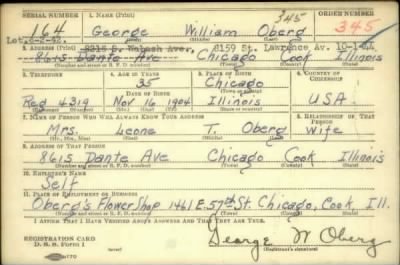 SERIAL NUMBER 1. NAME (Print) 345 ORDER NUMBER
164 George William Oberg 345
(First) (Middle) (Last)
2. ADDRESS (Print) 8159 St. Lawrence Av.
8615 Dante Ave Chicago Cook Illinois
(Number and street or R. F. D. number) (Town) (County) (State)
3. TELEPHONE 4. AGE IN YEARS 5. PLACE OF BIRTH 6. COUNTRY OF CITIZENSHIP
35 Chicago
Reg 4319 Nov 16 1904 Illinois U.S.A.
7. NAME OF PERSON WHO WILL ALWAYS KNOW YOUR ADDRESS 8. RELATIONSHIP OF THAT PERSON
Mrs. Leone T. Oberg Wife
(Mr., Mrs., Miss) (First) (Middle) (Last)
9. ADDRESS OF THAT PERSON
8615 Dante Ave Chicago Cook Illinois
(Number and street or R. F. D. number) (Town) (County) (State)
10. EMPLOYER'S NAME
Self
11. PLACE OF EMPLOYMENT OR BUSINESS
Oberg's Flower Shop 1461 E. 57th St. Chicago, Cook, Ill.
(Number and street or R. F. D. number) (Town) (County) (State)
I AFFIRM THAT I HAVE VERIFIED ABOVE ANSWERS AND THAT THEY ARE TRUE.
REGISTRATION CARD
D. S. S. Form 1 George W Oberg
(Registrant's signature)